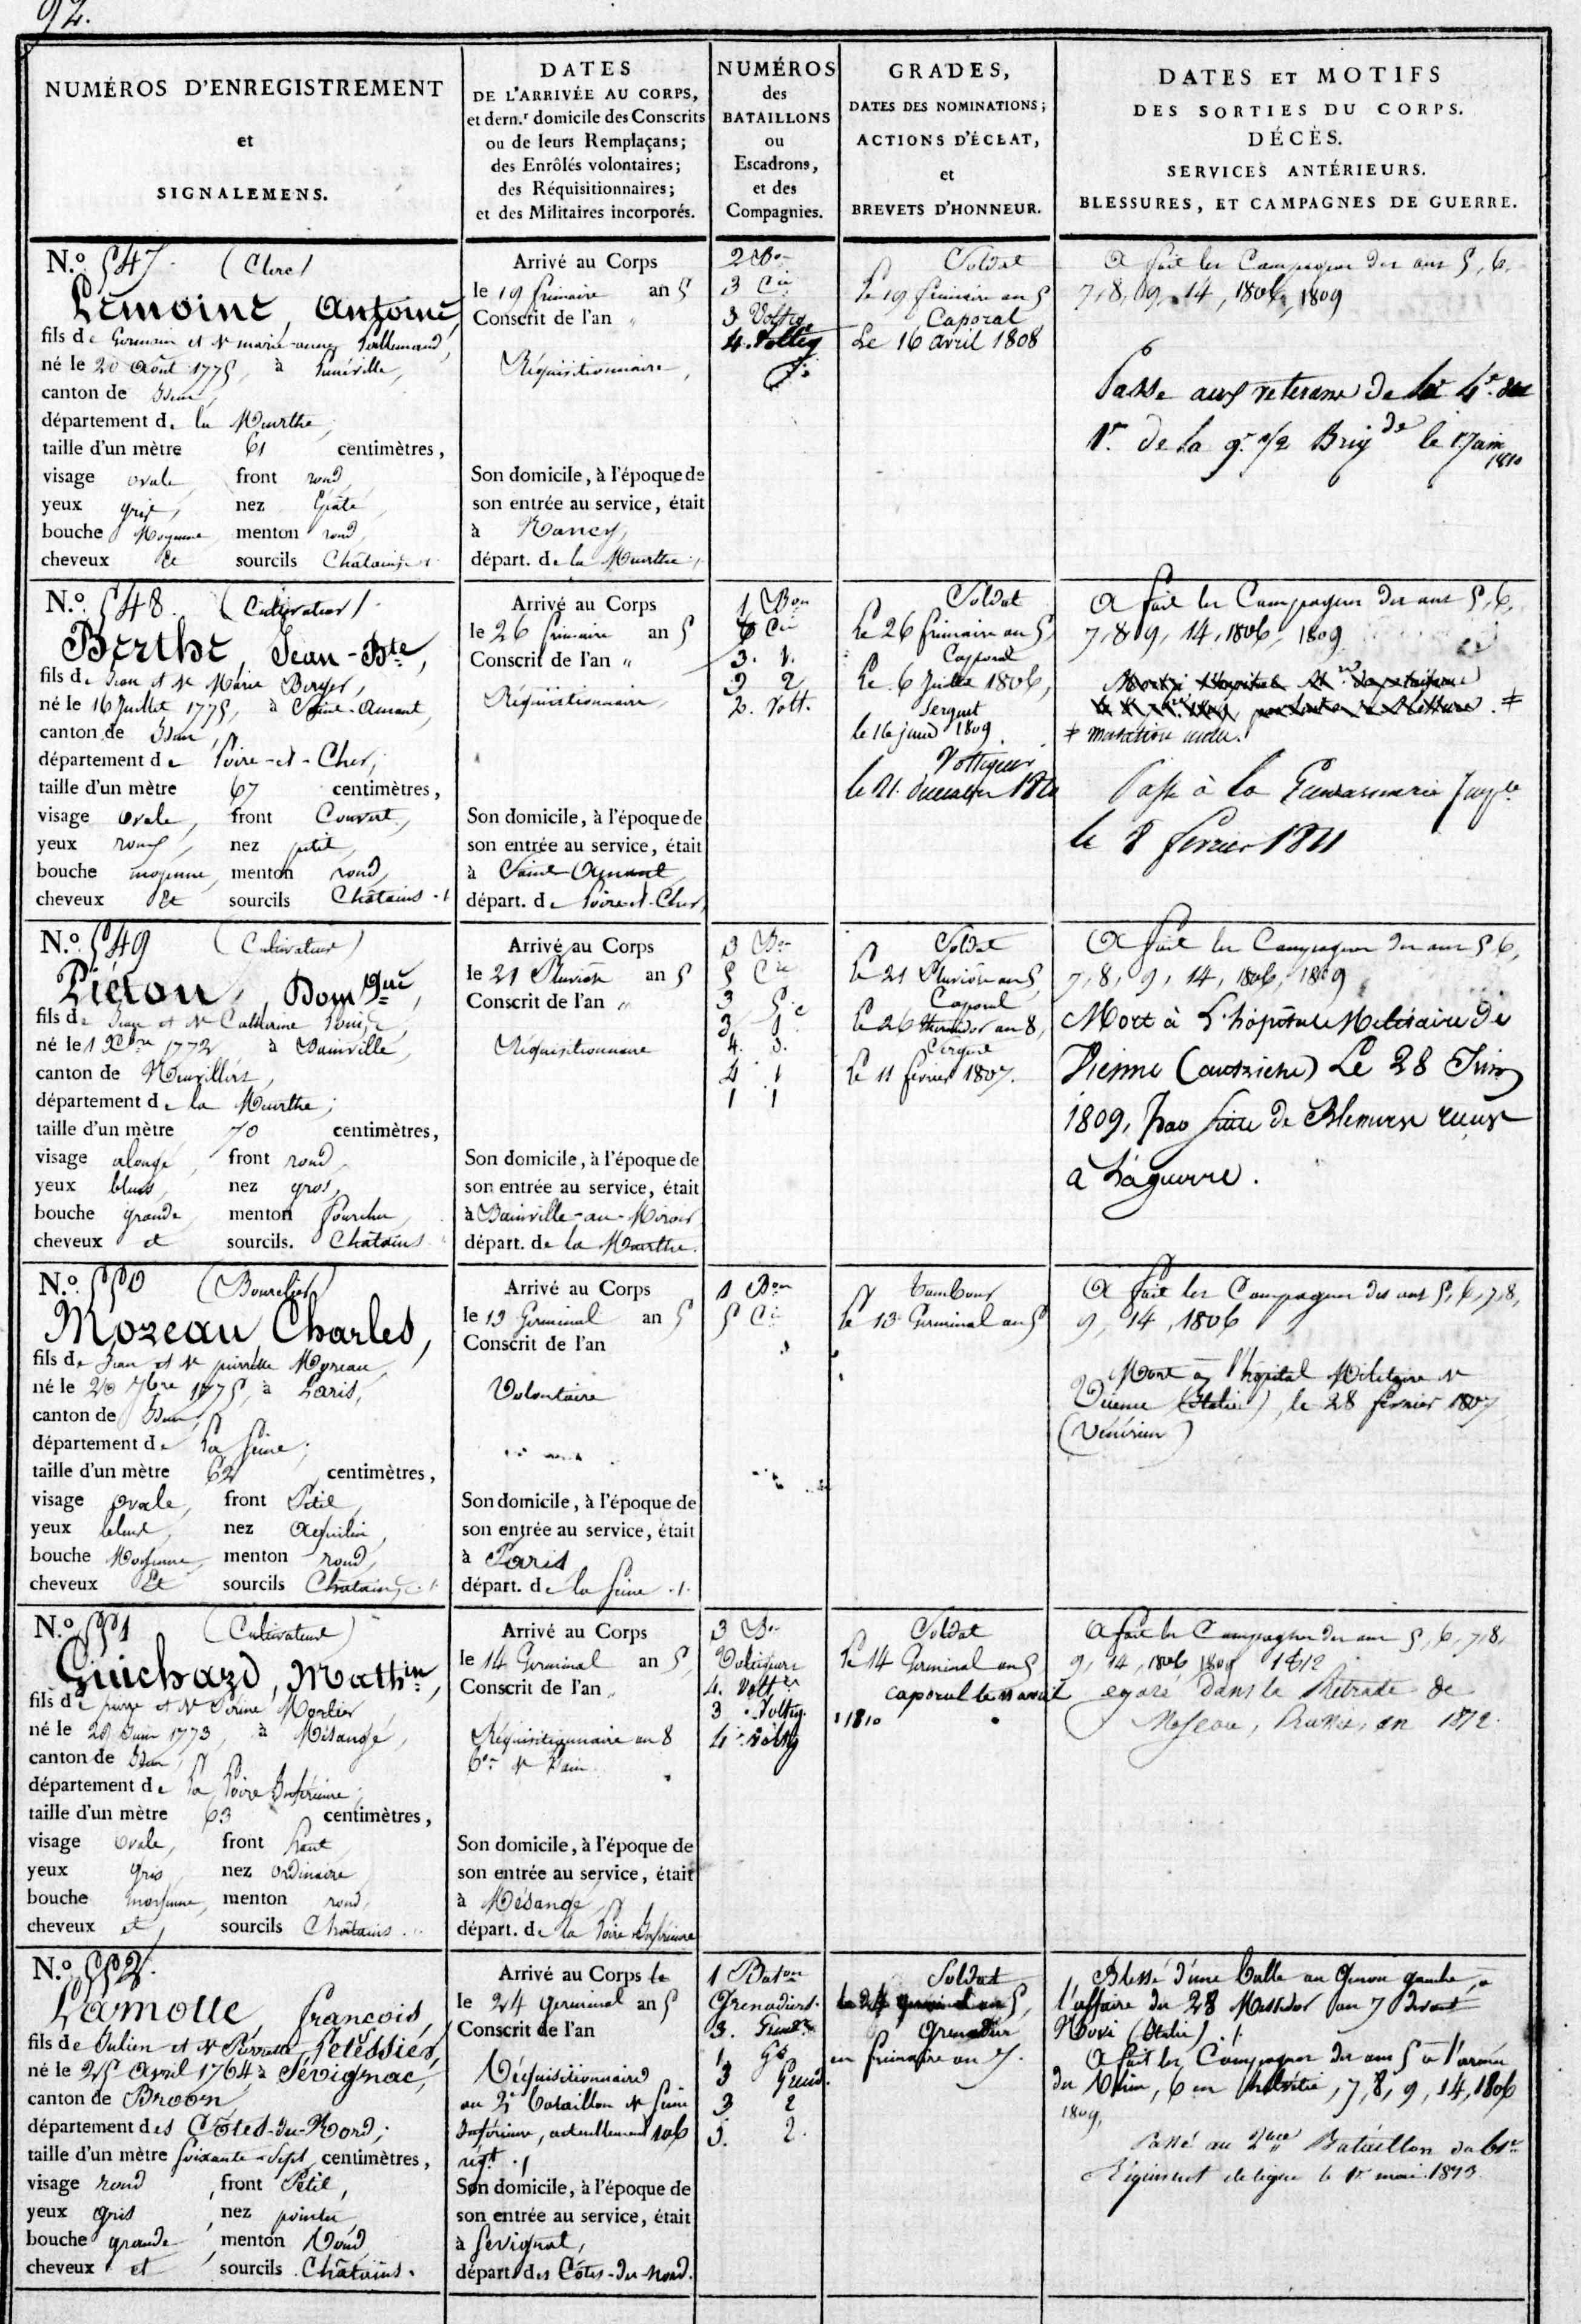 92.
NUMÉROS D'ENREGISTREMENT
et
SIGNALEMENS.
DATES
DE L'ARRIVÉE AU CORPS,
et dern.r domicile des Conscrits
ou de leurs Remplaçans;
des Enrôlés volontaires;
des Réquisitionnaires;
et des Militaires incorporés.
NUMÉROS
des
BATAILLONS
ou
Escadrons,
et des
Compagnies.
GRADES,
DATES DES NOMINATIONS;
ACTIONS D'ÉCLAT,
et
BREVETS D'HONNEUR.
DATES ET MOTIFS
DES SORTIES DU CORPS.
DÉCÈS.
SERVICES ANTÉRIEURS.
BLESSURES, ET CAMPAGNES DE GUERRE.
N.o 547 (Clerc)
Lemoine, Antoine,
fils de Germain et de marie-anne
né le 20 Août 1775, à Lunéville,
canton de Idem,
département de la Meurthe,
taille d'un mètre 61 centimètres,
visage ovale, front rond,
yeux gris, nez Epâté,
bouche Moyenne, menton rond,
cheveux Et sourcils Châtains
Arrivé au Corps
le 19 frimaire an 5
Conscrit de l'an "
Réquisitionnaire,
Son domicile, à l'époque de
son entrée au service, était
à Nancy,
départ. de la Meurthe
2 Bon
3 Cie
3 Voltig
4. Voltig
Soldat
le 19 frimaire an 5
Caporal
Le 16 avril 1808
A fait les Campagnes des ans 5, 6,
7, 8, 9, 14, 1806, 1809
Passé aux veterans de la 4e
de la 9e 1/2 Brigde le 1 Juin
1810
N.o 548. (Cultivateur)
Berthe, Jean-Bte,
fils de Jean et de Marie Berger,
né le 16 Juillet 1775, à Saint-Amant,
canton de Idem,
département de Loire-et-Cher,
taille d'un mètre 67 centimètres,
visage ovale, front Couvert,
yeux roux, nez petit,
bouche moyenne, menton rond,
cheveux Et sourcils Châtains
Arrivé au Corps
le 26 frimaire an 5
Conscrit de l'an "
Réquisitionnaire,
Son domicile, à l'époque de
son entrée au service, était
à Saint Amant
départ. de Loire-et-Cher,
1 Bon
8 Cie
3. 1.
3 2
2. Volt.
Soldat
le 26 frimaire an 5
Caporal
le 6 Juillet 1806,
Sergent
le 16 juin 1809.
Voltigeur
le 21. décembre 1810
A fait les Campagnes des ans 5, 6,
7, 8, 9, 14, 1806, 1809
Passé à la Gendarmerie Imple
le 8 février 1811
N.o 549 (Cultivateur)
Piéton, Domque,
fils de Jean et de Catherine
né le 1 Xbre 1772 à Bainville,
canton de
département de la Meurthe;
taille d'un mètre 70 centimètres,
visage alongé, front rond,
yeux bleus, nez gros,
bouche grande, menton fourchu,
cheveux et sourcils. Châtains
Arrivé au Corps
le 21 Pluviose an 5
Conscrit de l'an "
Réquisitionnaire
Son domicile, à l'époque de
son entrée au service, était
à Bainville-au-Miroir
départ. de la Meurthe.
3 Bon
5 Cie
3 5e
3 1
4. 3.
4 1
1 1
Soldat
le 21 Pluviose an 5
Caporal
le 26 thermidor an 8,
Sergent
le 11 février 1807.
A fait les Campagnes des ans 5, 6,
7, 8, 9, 14, 1806, 1809
Mort à L'hopitale Militaire de
Vienne (autriche) Le 28 Juin
1809, Par suite de Blessures reçus
a Laguerre.
N.o 550 (Bourelier)
Mozeau Charles,
fils de Jean et de pierrette Moreau,
né le 20 7bre 1775, à Paris,
canton de Idem,
département de La Seine;
taille d'un mètre 62 centimètres,
visage ovale, front Petit,
yeux bleus, nez Aquilin,
bouche Moyenne, menton rond,
cheveux Et sourcils Châtains
Arrivé au Corps
le 13 Germinal an 5
Conscrit de l'an
Volontaire
Son domicile, à l'époque de
son entrée au service, était
à Paris
départ. de la Seine
1 Bon
5 Cie
Tambour
le 13 Germinal an 5
A fait les Campagnes des ans 5, 6, 7, 8,
9, 14, 1806
Mort à l'hôpital Militaire de
(Italie), le 28 février 1807
(Vénérien)
N.o 551 (Cultivateur)
Guichard, Mathin,
fils de pierre et de Perine Mortier,
né le 29 Juin 1773, à Mésange,
canton de Idem,
département de La Loire Inférieure;
taille d'un mètre 63 centimètres,
visage ovale, front haut,
yeux gris, nez ordinaire
bouche moyenne, menton rond,
cheveux et sourcils Châtains
Arrivé au Corps
le 14 Germinal an 5,
Conscrit de l'an "
Réquisitionnaire au 8
Bon de l'ain
Son domicile, à l'époque de
son entrée au service, était
à Mésange,
départ. de la Loire Inférieure
3 Bon
Voltigeurs
4. Voltrs
3 Voltig.
4e Voltig
Soldat
le 14 Germinal an 5
caporal le 11 avril
1810
A fait les Campagnes des ans 5, 6, 7, 8,
9, 14, 1806 1809 1812
egaré dans la Retraite de
Moscou, Russie, en 1812.
N.o 552.
Lamotte, François,
fils de Julien et de Perrette Pelessier,
né le 25 Avril 1764 à Sévignac,
canton de Broon,
département des Côtes-du-Nord;
taille d'un mètre soixante-sept centimètres,
visage rond, front Petit,
yeux gris, nez pointu,
bouche grande, menton Rond,
cheveux et sourcils Châtains.
Arrivé au Corps le
le 24 germinal an 5
Conscrit de l'an
Réquisitionnaire
au 2e bataillon de Seine
Inférieure, actuellement 106
régt
Son domicile, à l'époque de
son entrée au service, était
à Sevignat,
départ. des Côtes-du-Nord.
1 Baton
Grenadiers.
3. Grendrs
1 Gre
3 Grend.
3 2
3. 2.
Soldat
le 24 germinal an 5,
Grenadier
en frimaire an 7.
Blessé d'une balle au Genou gauche, à
l'affaire du 28 Messidor an 7 devant
Novi (Italie).
A fait les Campagnes des ans 5 à l'armée
du Rhin, 6 en helvétie, 7, 8, 9, 14, 1806
1809,
Passé au 2me Bataillon du 61e
Régiment de ligne le 1er mai 1813.